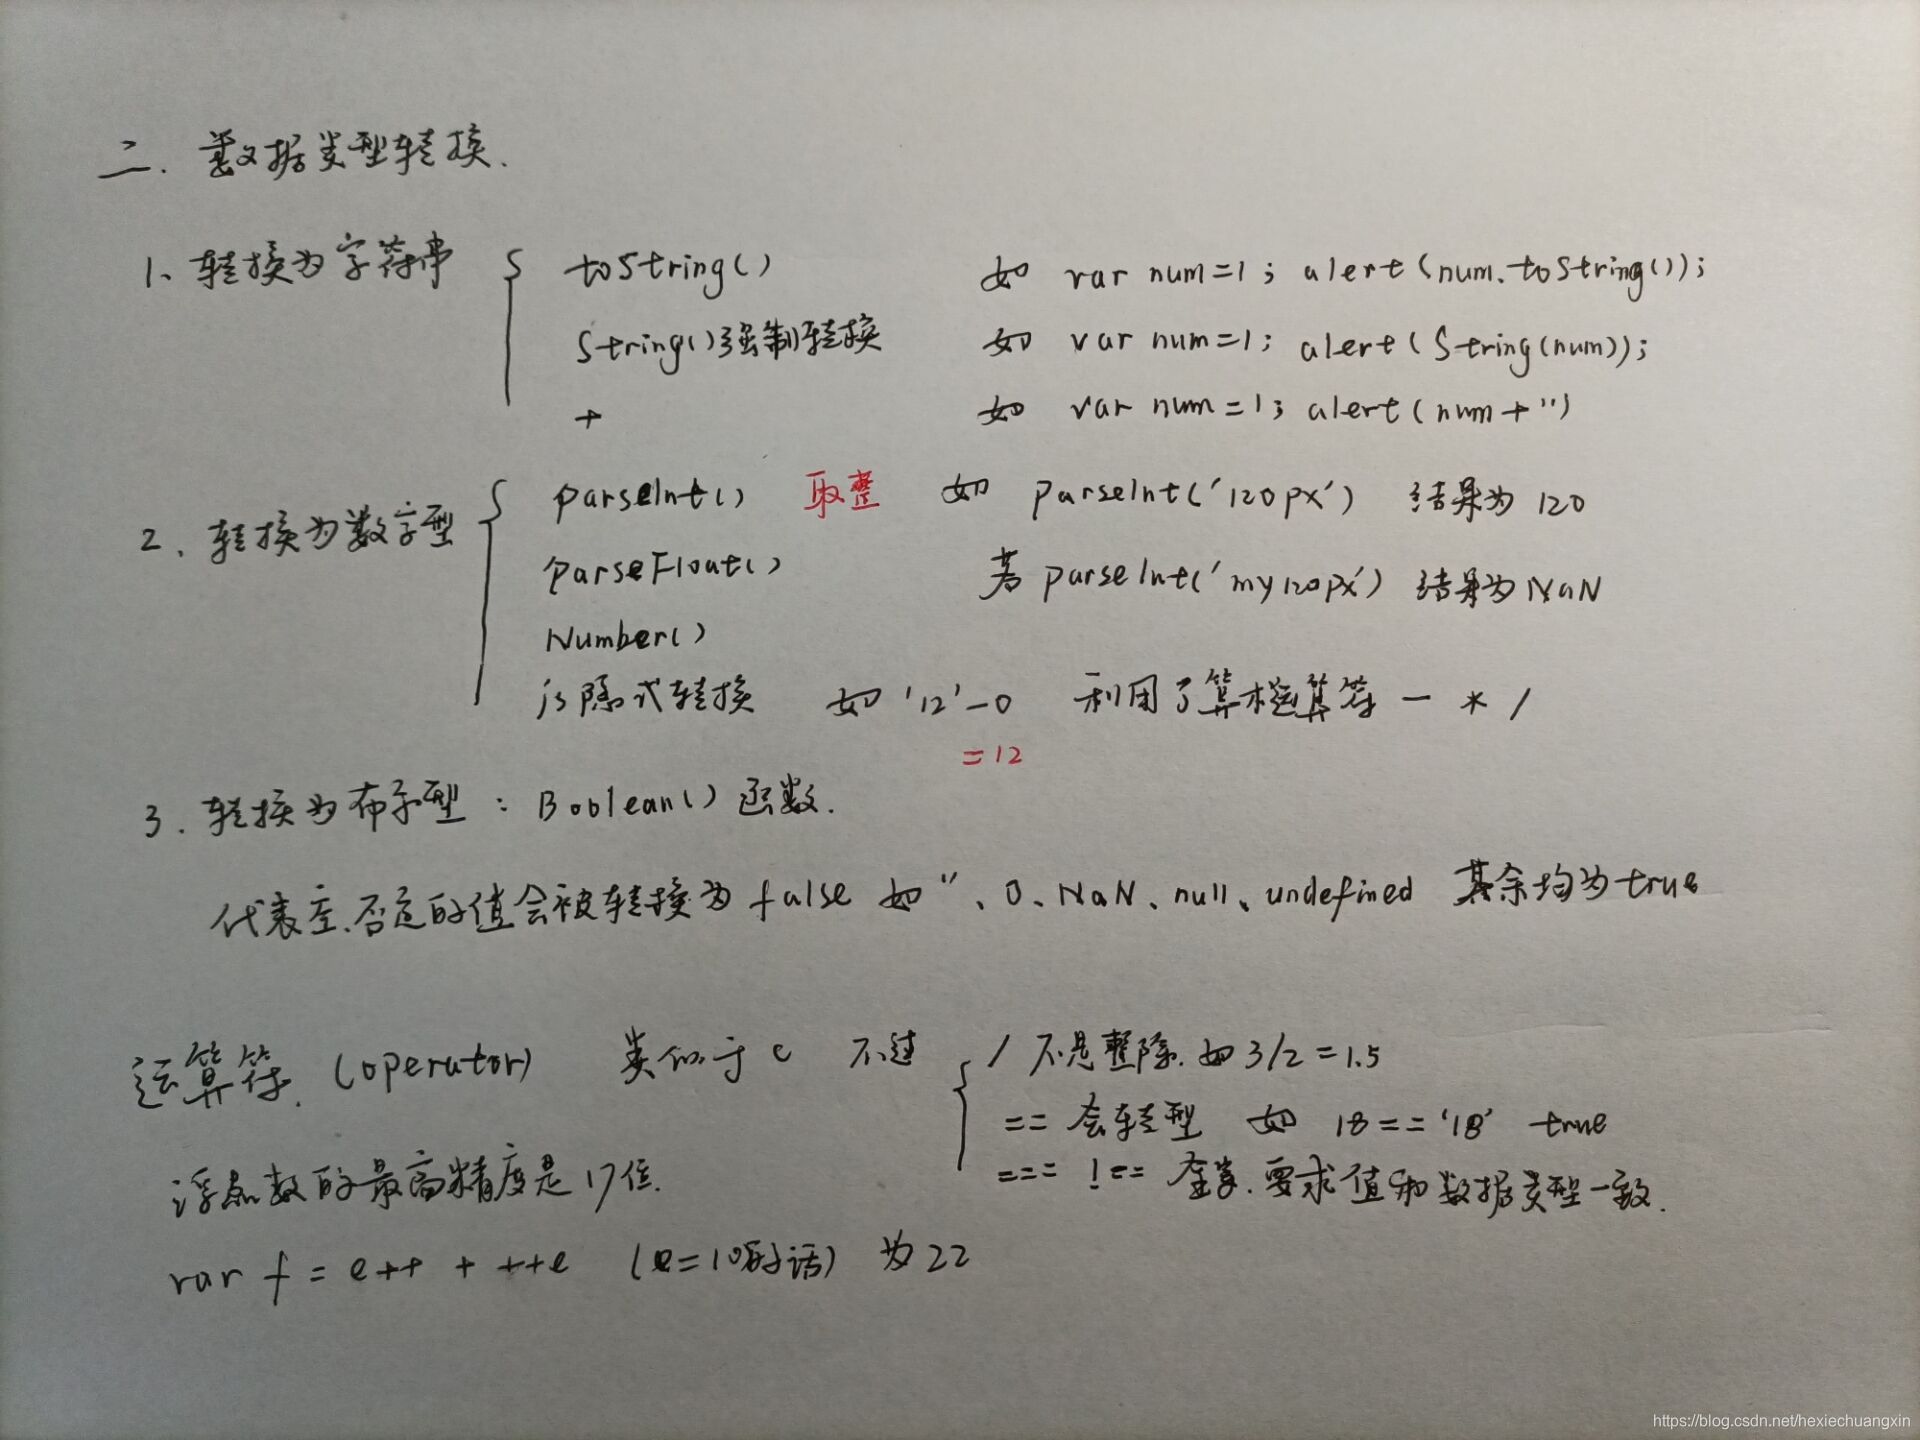 二. 数据类型转换.
1、转换为字符串 { toString() 如 var num=1; alert(num.toString());
String()强制转换 如 var num=1; alert(String(num));
+ 如 var num=1; alert(num+'')
2、转换为数字型 { parseInt() 取整 如 parseInt('120px') 结果为 120
parseFloat() 若 parseInt('my120px') 结果为 NaN
Number()
js隐式转换 如 '12'-0 利用了算术运算符 - * /
=12
3. 转换为布尔型 : Boolean() 函数.
代表空.否定的值会被转换为 false 如 ''、0、NaN、null、undefined 其余均为true
运算符. (operator) 类似于 c 不过 { / 不是整除. 如 3/2=1.5
== 会转型 如 18=='18' true
=== !== 全等. 要求值和数据类型一致.
浮点数的最高精度是17位.
var f = e++ + ++e (e=10的话) 为 22
https://blog.csdn.net/hexiechuangxin